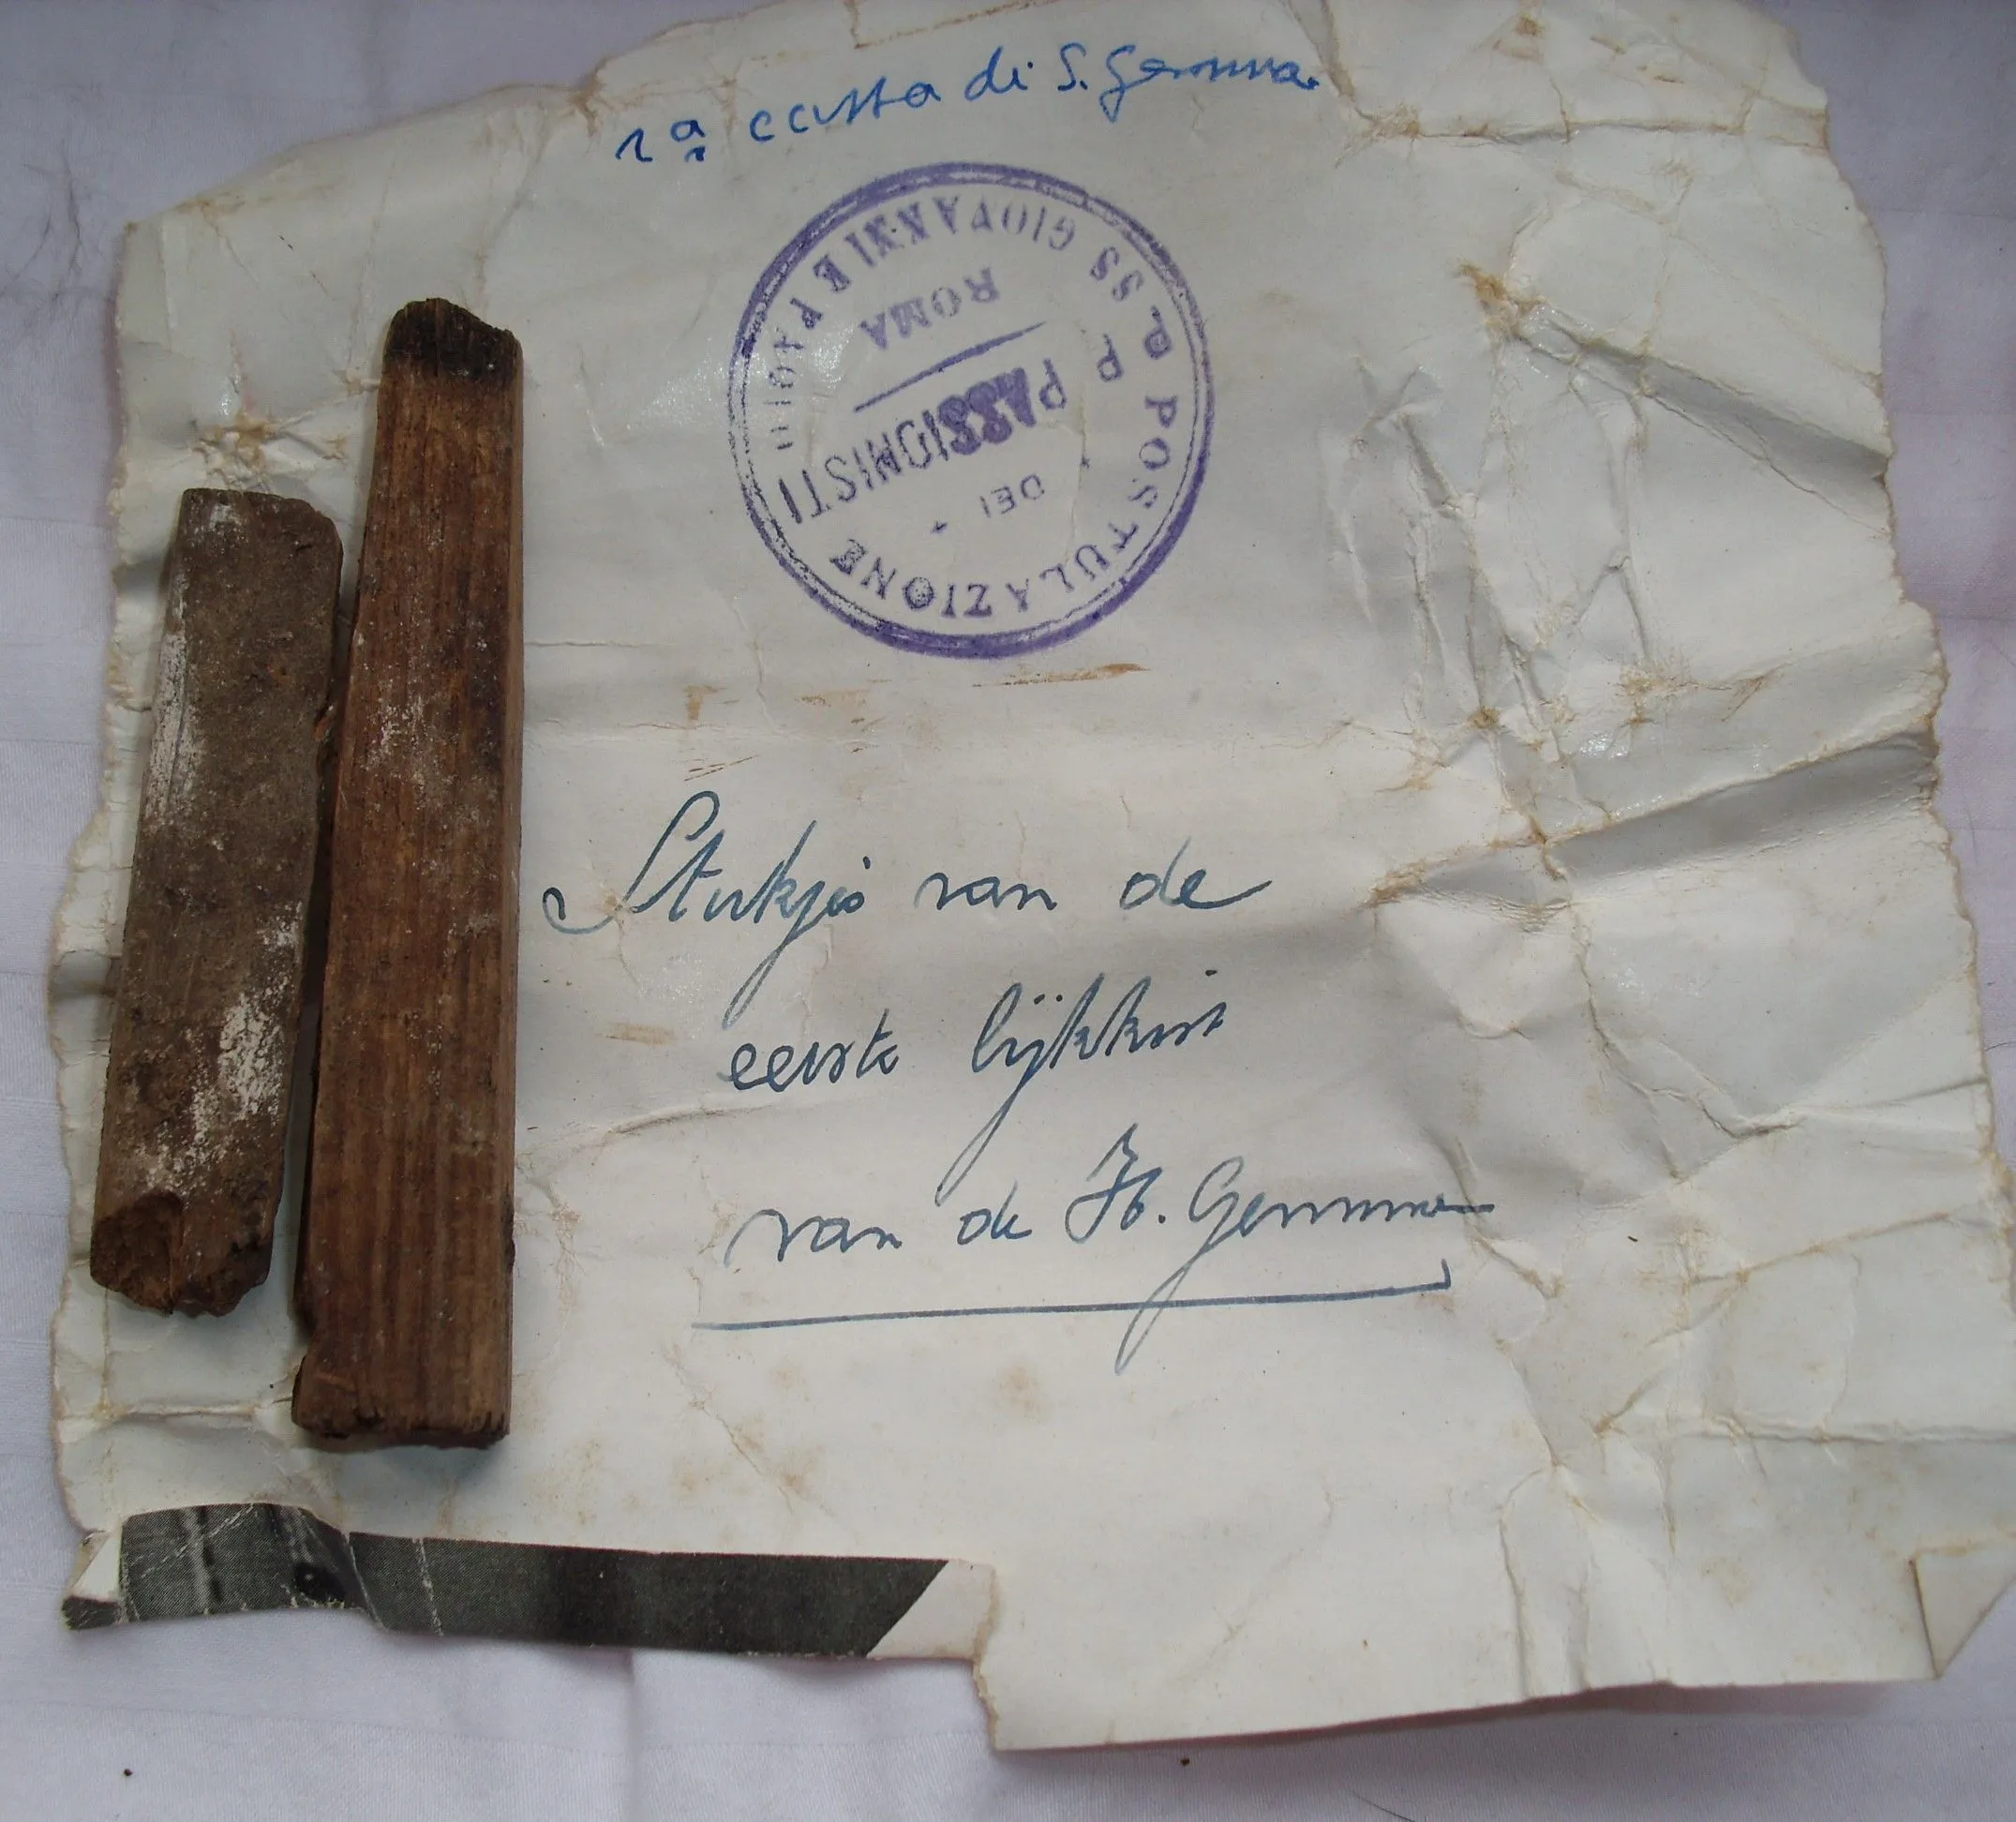 1a cassa di S. Gemma.
POSTULAZIONE P.P. SS GIOVANNI E PAOLO
DEI
PASSIONISTI
ROMA
Stukjes van de
eerste lijkkist
van de H. Gemma